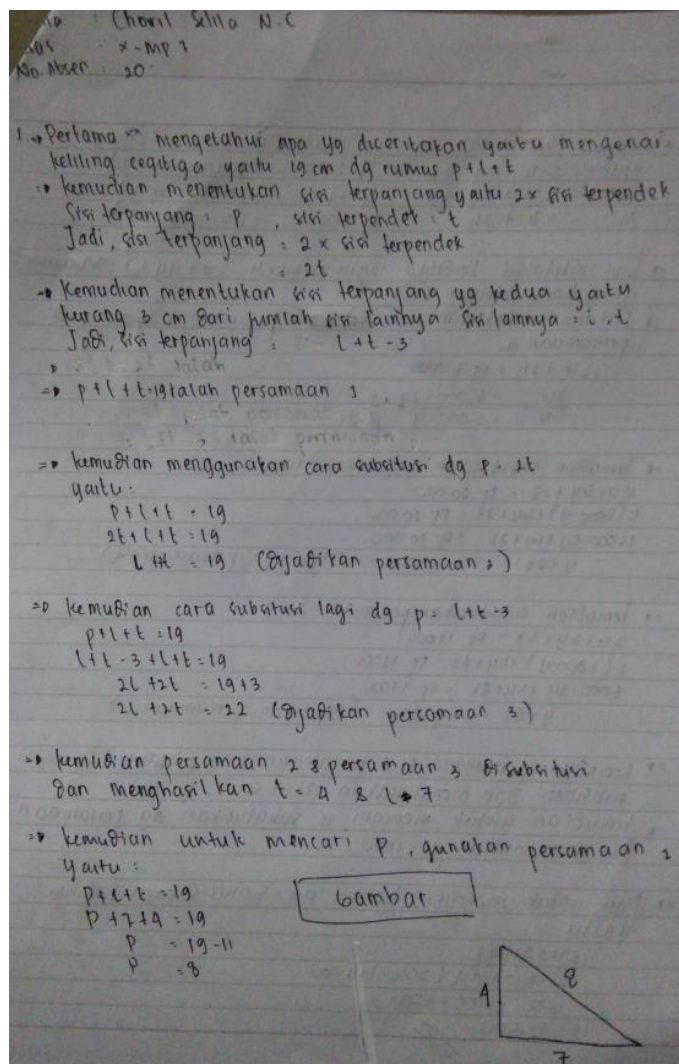 Choril Sellla N.C
: x-MP 1
No. Absen : 20
1. → Pertama mengetahui apa yg diceritakan yaitu mengenai
keliling cegitiga yaitu 19 cm dg rumus p+l+t
=> kemudian menentukan sisi terpanjang yaitu 2x sisi terpendek
Sisi terpanjang : p , sisi terpendek : t
Jadi, sisi terpanjang : 2 x sisi terpendek
: 2t
→ Kemudian menentukan sisi terpanjang yg kedua yaitu
kurang 3 cm dari jumlah sisi lainnya sisi lainnya = l, t
Jadi, sisi terpanjang : l + t - 3
=> p + l + t = 19 ialah persamaan 1
=> kemudian menggunakan cara subsitusi dg p = 2t
yaitu :
p + l + t = 19
2t + l + t = 19
= 19 (dijadikan persamaan 2)
=> kemudian cara subsitusi lagi dg p = l + t - 3
p + l + t = 19
l + t - 3 + l + t = 19
2l + 2t = 19 + 3
2l + 2t = 22 (dijadikan persamaan 3)
=> kemudian persamaan 2 & persamaan 3 di subsitusi
dan menghasilkan t = 4 & l = 7
=> kemudian untuk mencari p, gunakan persamaan 1
yaitu :
p + l + t = 19
p + 7 + 4 = 19
p = 19 - 11
p = 8
Gambar
4 8
7